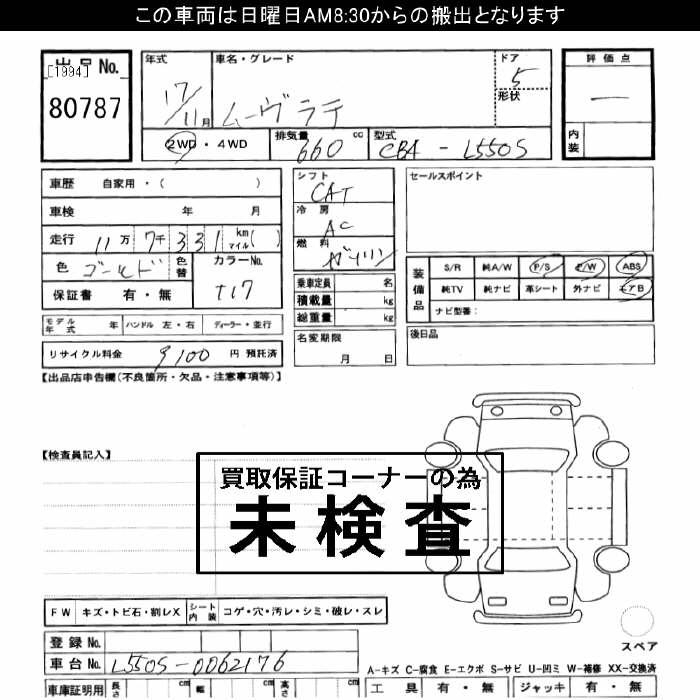 この車両は日曜日AM8:30からの搬出となります
出品No.
[1994]
80787
年式
17/11月
車名・グレード
ムーヴラテ
ドア
5
形状
2WD・4WD
排気量
660 cc
型式
CBA-L550S
評価点
―
内装
車歴 自家用・( )
車検 年 月
走行 11万 7千 3 3 1 km マイル( )
色 ゴールド 色替
カラーNo.
T17
保証書 有・無
シフト
CAT
冷房
AC
燃料
ガソリン
乗車定員 名
積載量 kg
総重量 kg
名変期限
月 日
セールスポイント
装備品
S/R 純A/W P/S P/W ABS
純TV 純ナビ 革シート 外ナビ エアB
ナビ型番:
後日品
モデル年式 年 ハンドル 左・右 ディーラー・並行
リサイクル料金 9100 円 預託済
【出品店申告欄(不良箇所・欠品・注意事項等)】
【検査員記入】
買取保証コーナーの為
未検査
FW キズ・トビ石・割レX シート内装 コゲ・穴・汚レ・シミ・破レ・スレ
登録No.
車台No. L550S-0062176
車庫証明用 長さ cm 幅 cm 高さ cm
スペア
A-キズ C-腐食 E-エクボ S-サビ U-凹ミ W-補修 XX-交換済
工具 有・無 ジャッキ 有・無